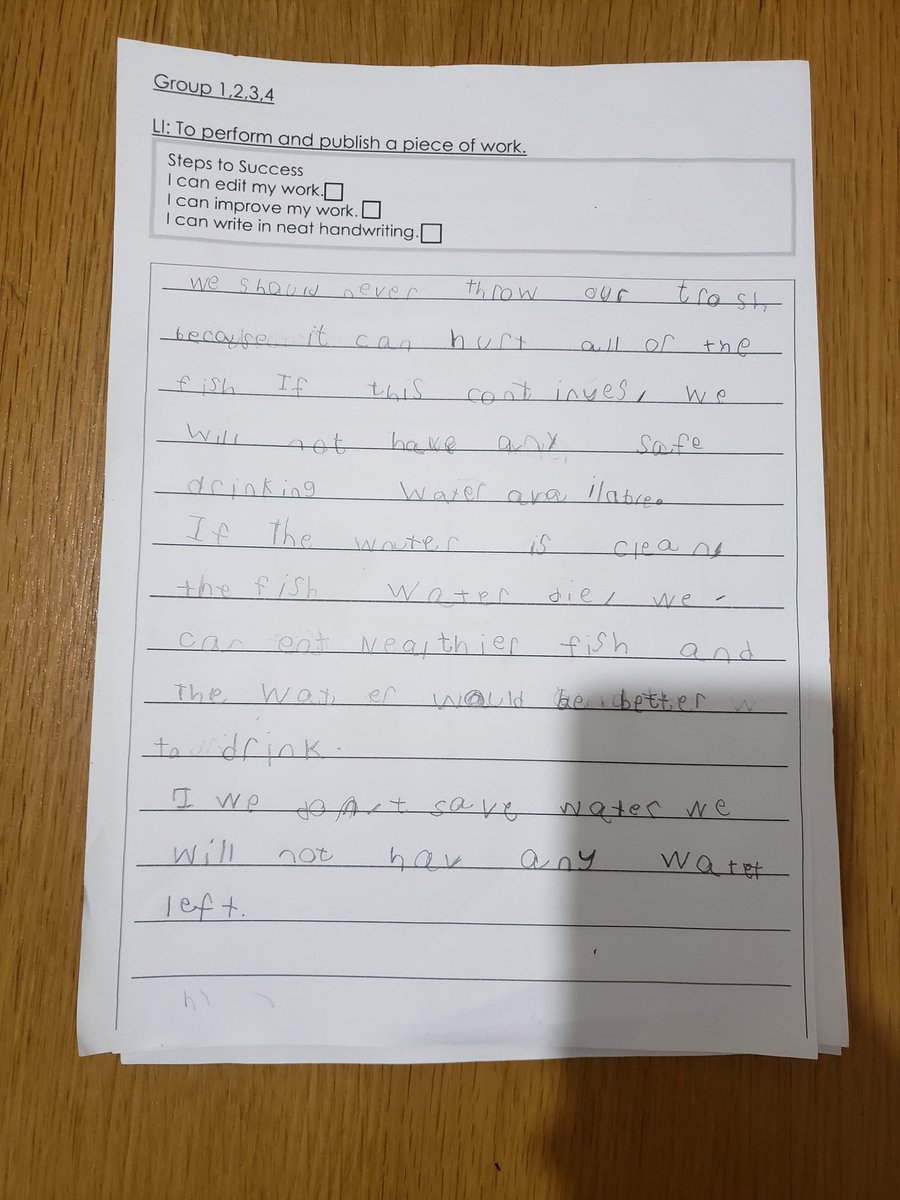 Group 1,2,3,4
LI: To perform and publish a piece of work.
Steps to Success
I can edit my work.
I can improve my work.
I can write in neat handwriting.
we should never throw our trash
because it can hurt all of the
fish If this continues, we
will not have any safe
drinking water
If the water is clean
the fish water die, we
can eat healthier fish and
the water would be better
to drink.
I we save water we
will not hav any water
left.